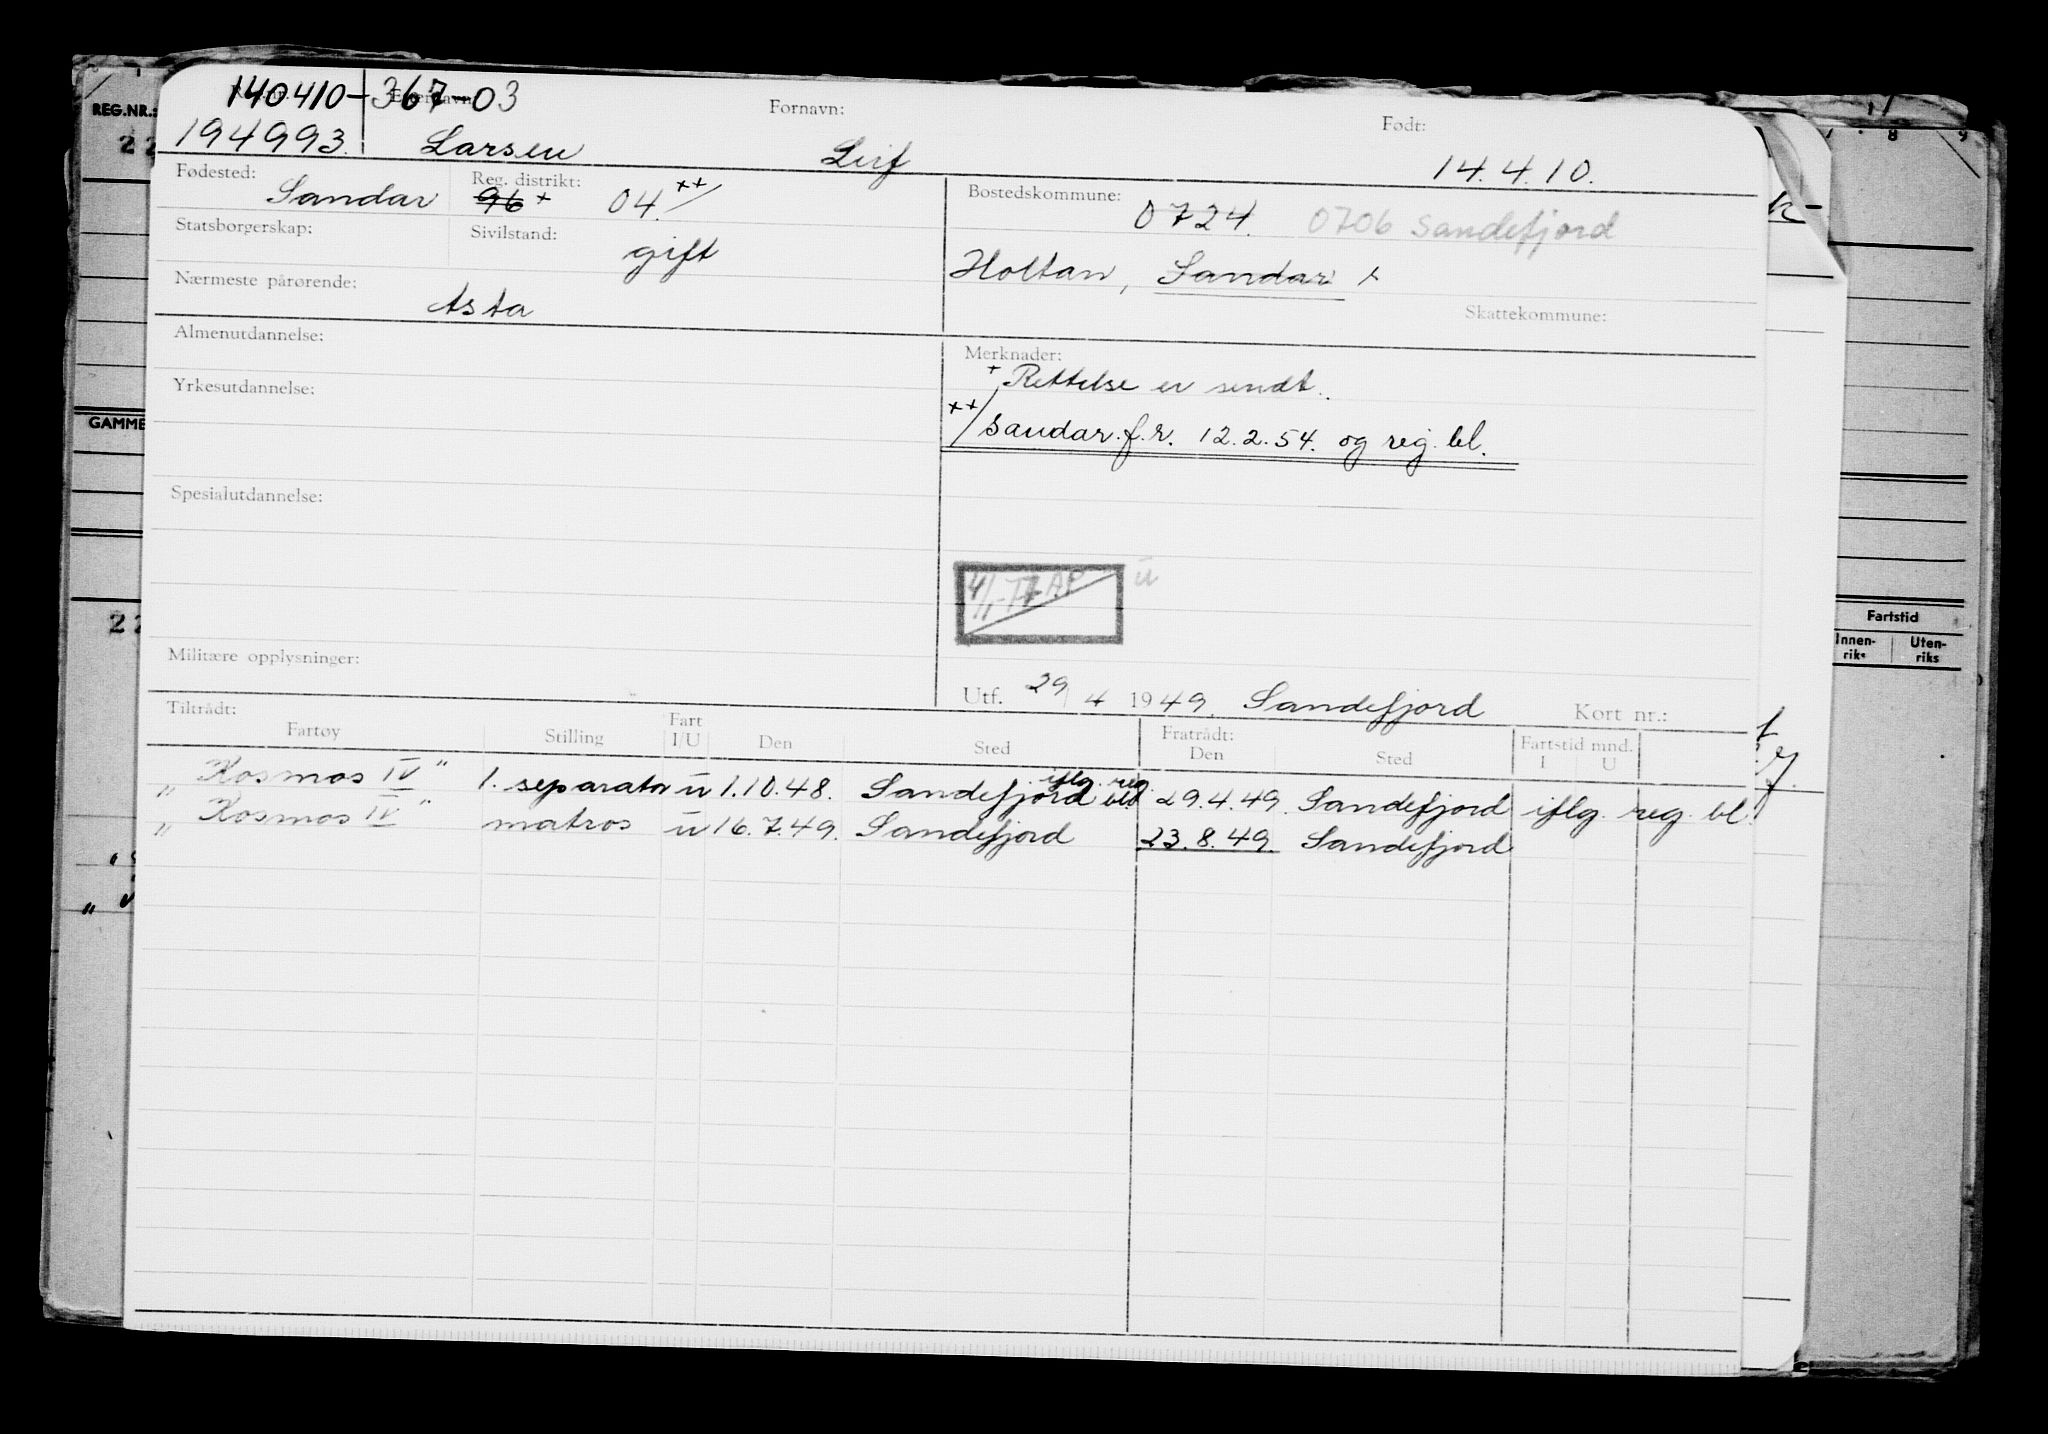 140410-367-03
REG.NR.: Fornavn: Født:
194993. Larsen Leif 14.4.10.
Fødested: Sandar Reg. distrikt: 96 + 04 ++/ Bostedskommune: 0724. 0706 Sandefjord
Statsborgerskap: Sivilstand: gift Holtan, Sandar x
Nærmeste pårørende: Asta Skattekommune:
Almenutdannelse: Merknader:
+ Rettelse er sendt.
Yrkesutdannelse:
++/ Sandar f.r. 12.2.54. og reg. bl.
GAMME
Spesialutdannelse:
4/1-77 AP ū
Militære opplysninger:
Utf. 29/4 1949. Sandefjord Kort nr.:
Fartstid
Innen-riks Uten-riks
Tiltrådt: Fratrådt: Fartstid mnd.
Fartøy Stilling Fart I/U Den Sted Den Sted I U
"Kosmos IV" 1. separatør ū 1.10.48. Sandefjord iflg. reg. bl. 29.4.49. Sandefjord iflg. reg. bl.
"Kosmos IV" matros ū 16.7.49. Sandefjord 23.8.49. Sandefjord